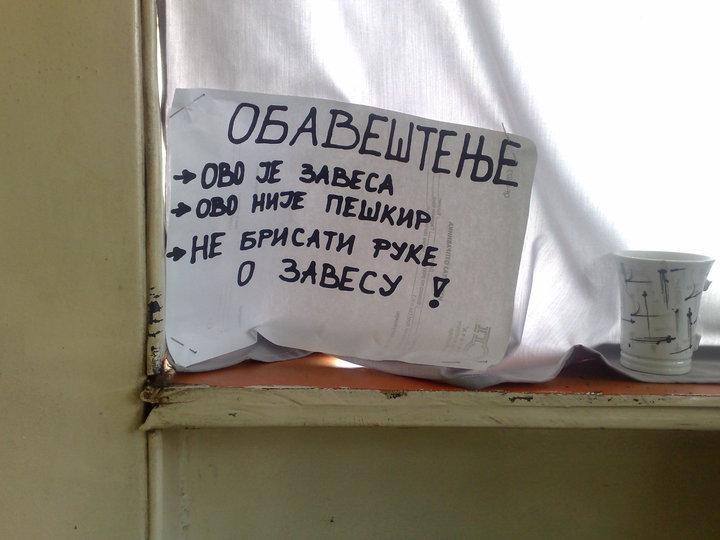 ОБАВЕШТЕЊЕ
→ ОВО ЈЕ ЗАВЕСА
→ ОВО НИЈЕ ПЕШКИР
→ НЕ БРИСАТИ РУКЕ
О ЗАВЕСУ !